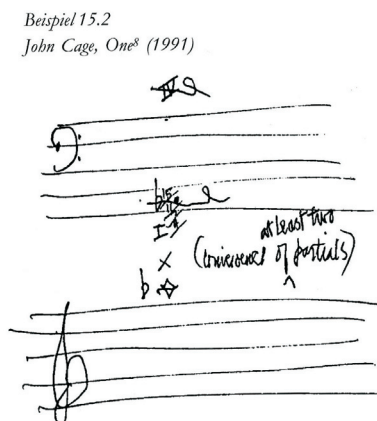 Beispiel 15.2
John Cage, One⁸ (1991)
IV
at least two
(convergence of partials)